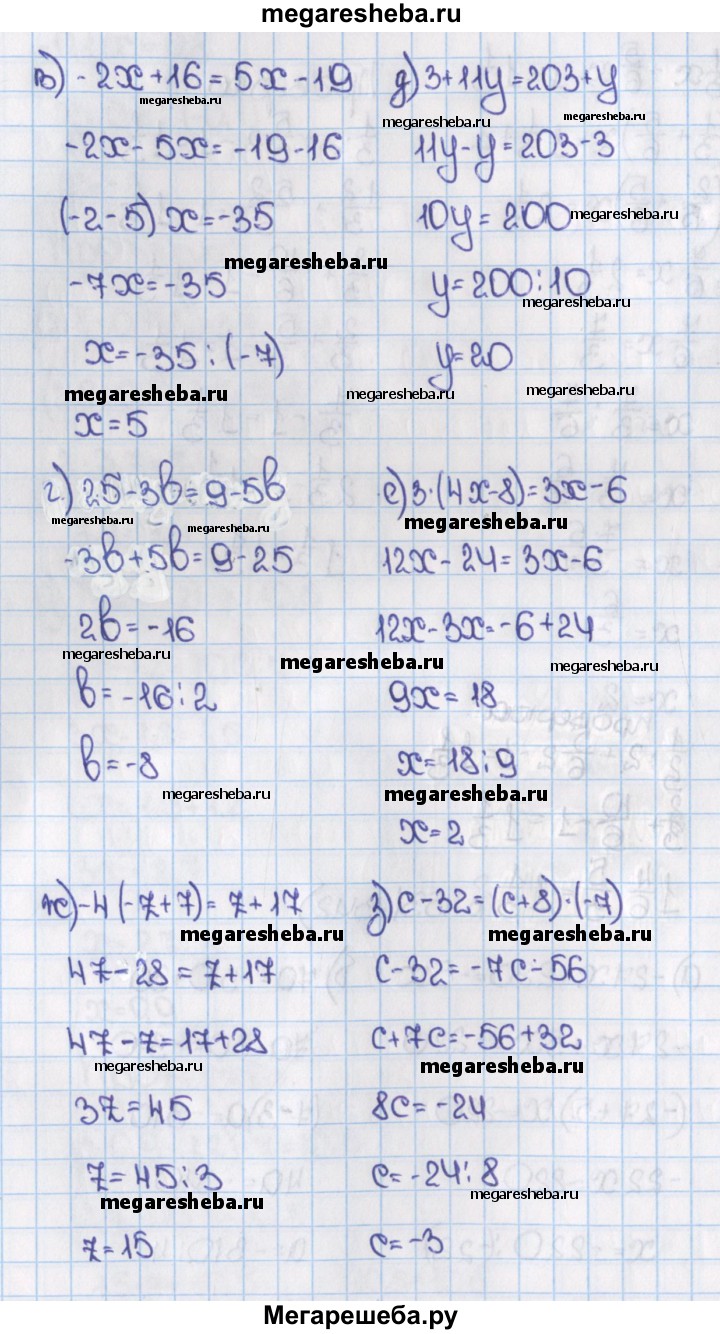 megaresheba.ru
в) -2x+16=5x-19
megaresheba.ru
-2x-5x=-19-16
(-2-5)x=-35
megaresheba.ru
-7x=-35
x=-35:(-7)
megaresheba.ru
x=5
д) 3+11y=203+y
megaresheba.ru
11y-y=203-3
10y=200
megaresheba.ru
y=200:10
megaresheba.ru
y=20
megaresheba.ru
megaresheba.ru
г) 25-3b=9-5b
megaresheba.ru
megaresheba.ru
-3b+5b=9-25
2b=-16
megaresheba.ru
b=-16:2
b=-8
megaresheba.ru
е) 3·(4x-8)=3x-6
megaresheba.ru
12x-24=3x-6
12x-3x=-6+24
megaresheba.ru
megaresheba.ru
9x=18
x=18:9
megaresheba.ru
x=2
ж) -4(-z+7)=z+17
megaresheba.ru
4z-28=z+17
4z-z=17+28
megaresheba.ru
3z=45
z=45:3
megaresheba.ru
z=15
з) c-32=(c+8)·(-7)
megaresheba.ru
c-32=-7c-56
c+7c=-56+32
megaresheba.ru
8c=-24
c=-24:8
megaresheba.ru
c=-3
Мегарешеба.ру